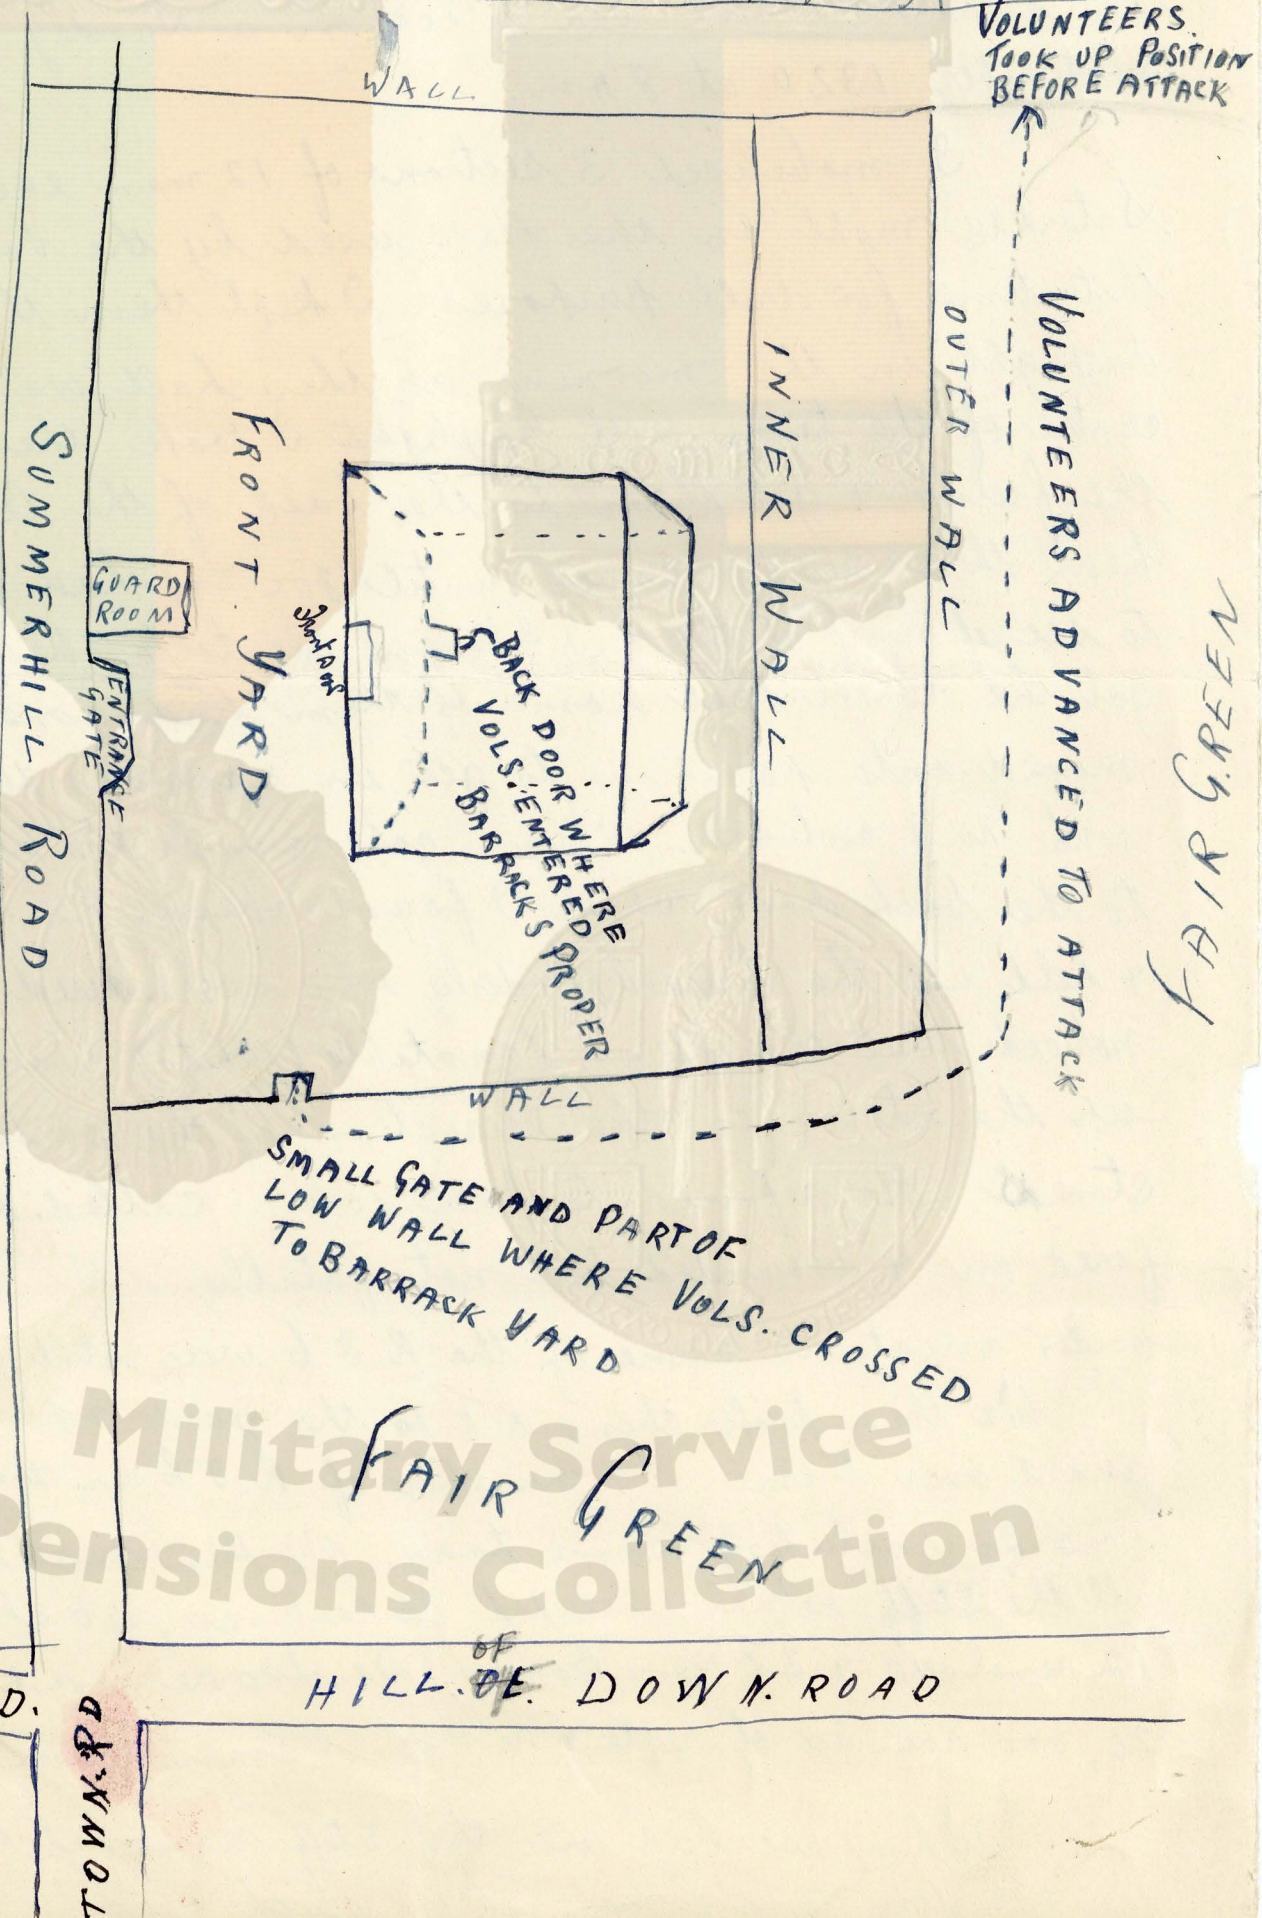 VOLUNTEERS.
TOOK UP POSITION
BEFORE ATTACK
WALL
OUTER WALL
INNER WALL
VOLUNTEERS ADVANCED TO ATTACK
FAIR GREEN
SUMMERHILL ROAD
FRONT. YARD
GUARD
ROOM
ENTRANCE
GATE
BACK DOOR WHERE
VOLS. ENTERED
BARRACKS PROPER
WALL
SMALL GATE AND PART OF
LOW WALL WHERE VOLS. CROSSED
TO BARRACK YARD
FAIR GREEN
Military Service
Pensions Collection
OF
HILL. DE. DOWN. ROAD
D.